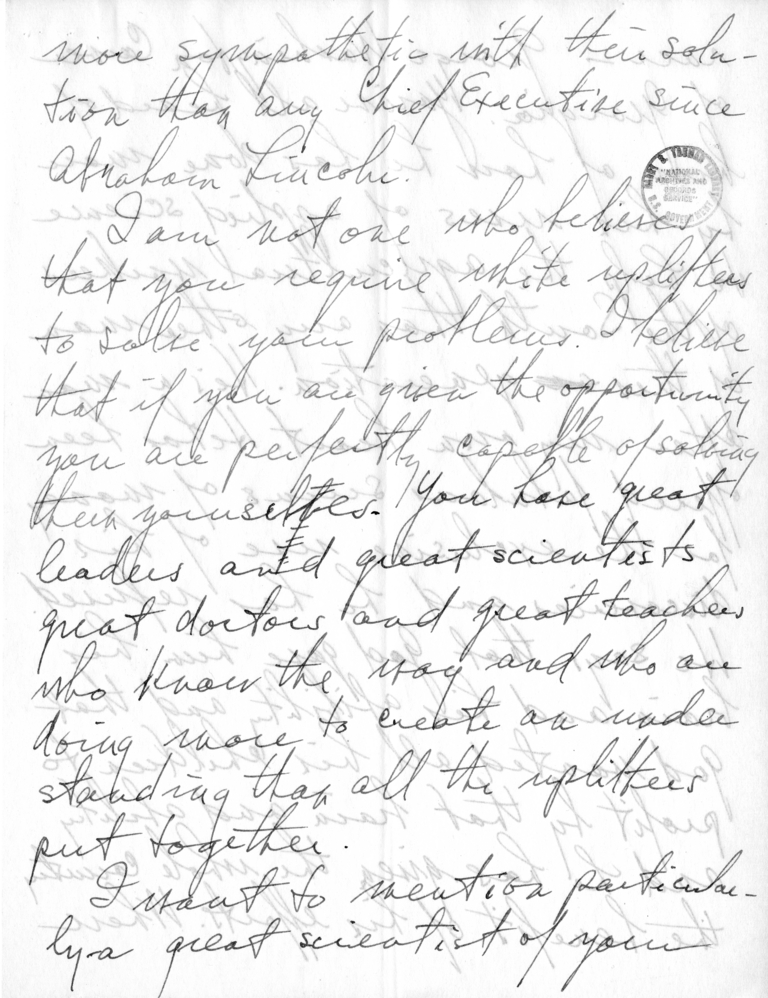 more sympathetic with their solu-
tion than any Chief Executive since
Abraham Lincoln.
HARRY S. TRUMAN LIBRARY
"NATIONAL
ARCHIVES AND
RECORDS
SERVICE"
U.S. GOVERNMENT
I am not one who believes
that you require white uplifters
to solve your problems. I believe
that if you are given the opportunity
you are perfectly capable of solving
them yourselves. You have great
leaders and great scientists
great doctors and great teachers
who know the way and who are
doing more to create an under
standing than all the uplifters
put together.
I want to mention particular-
ly a great scientist of your